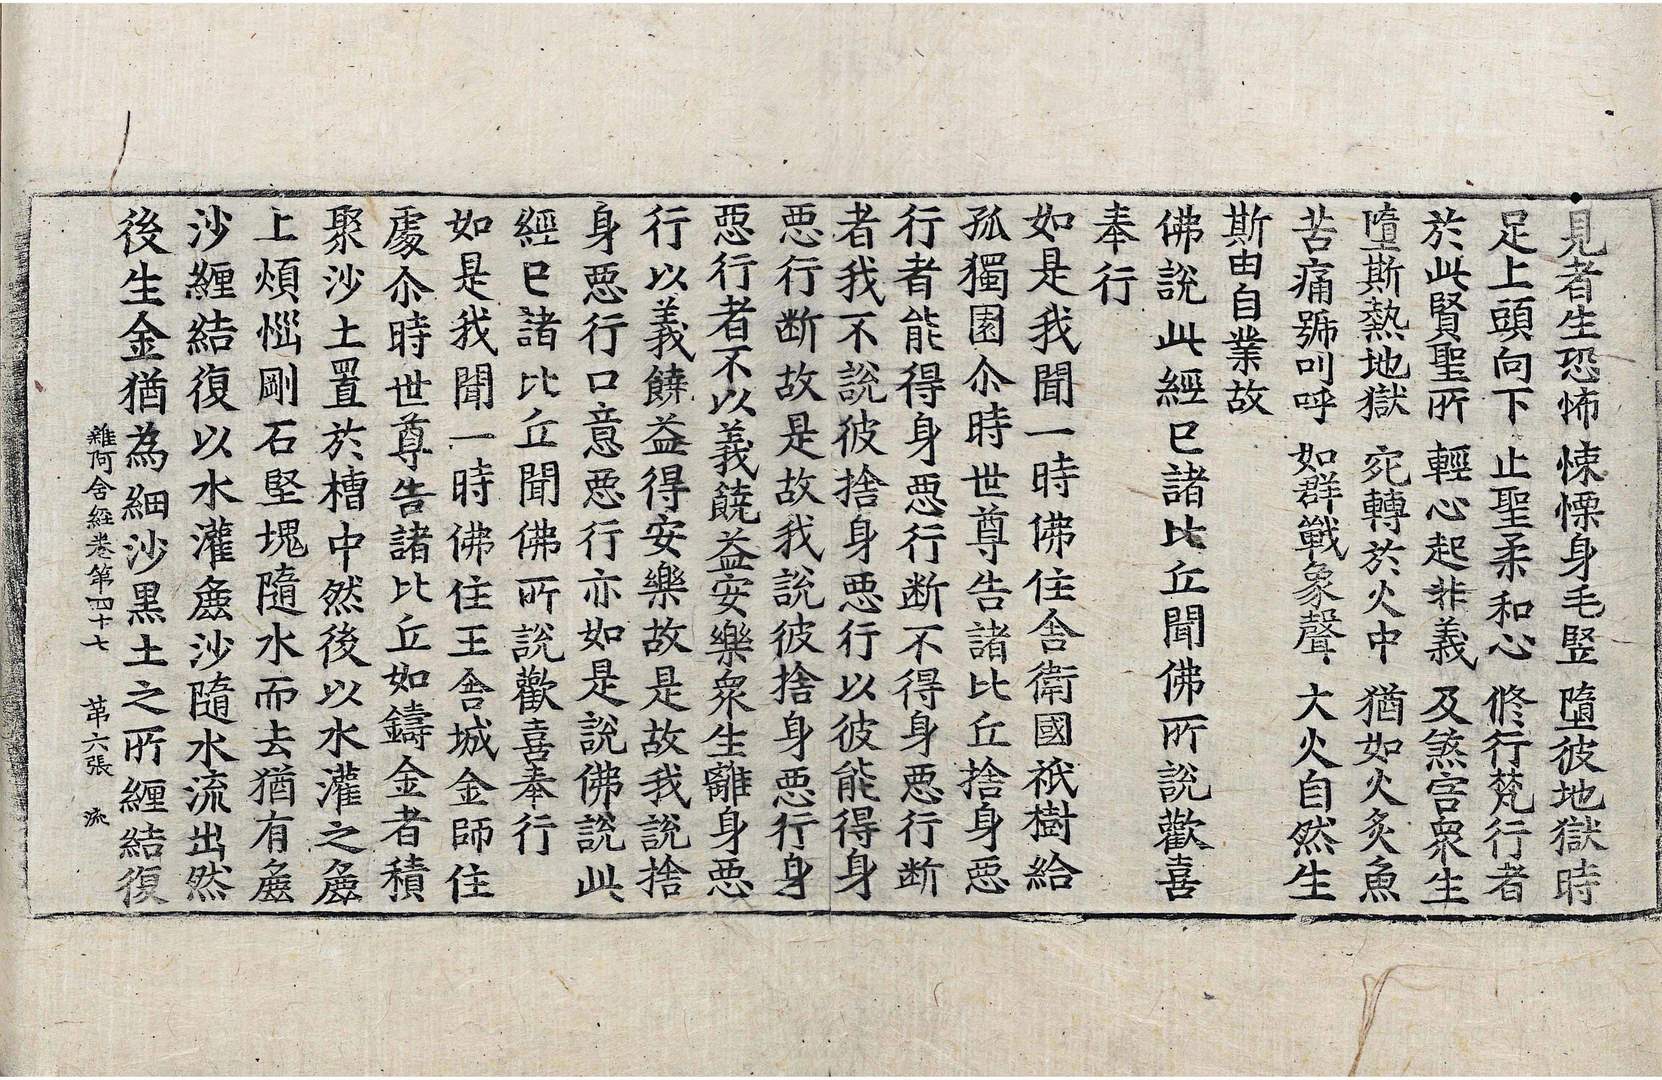 見者生恐怖 悚慄身毛竪 墮彼地獄時
足上頭向下 止聖柔和心 修行梵行者
於此賢聖所 輕心起非義 及煞害衆生
墮斯熱地獄 宛轉於火中 猶如火炙魚
苦痛號叫呼 如群戰象聲 大火自然生
斯由自業故
佛說此經已諸比丘聞佛所說歡喜
奉行
如是我聞一時佛住舍衛國祇樹給
孤獨園尒時世尊告諸比丘捨身惡
行者能得身惡行断不得身惡行断
者我不說彼捨身惡行以彼能得身
惡行断故是故我說彼捨身惡行身
惡行者不以義饒益安樂衆生離身惡
行以義饒益得安樂故是故我說捨
身惡行口意惡行亦如是說佛說此
經已諸比丘聞佛所說歡喜奉行
如是我聞一時佛住王舍城金師住
處尒時世尊告諸比丘如鑄金者積
聚沙土置於槽中然後以水灌之麁
上煩惱剛石堅塊隨水而去猶有麁
沙纏結復以水灌麁沙隨水流出然
後生金猶為細沙黑土之所纏結復
雜阿含經卷第四十七 第六張 流